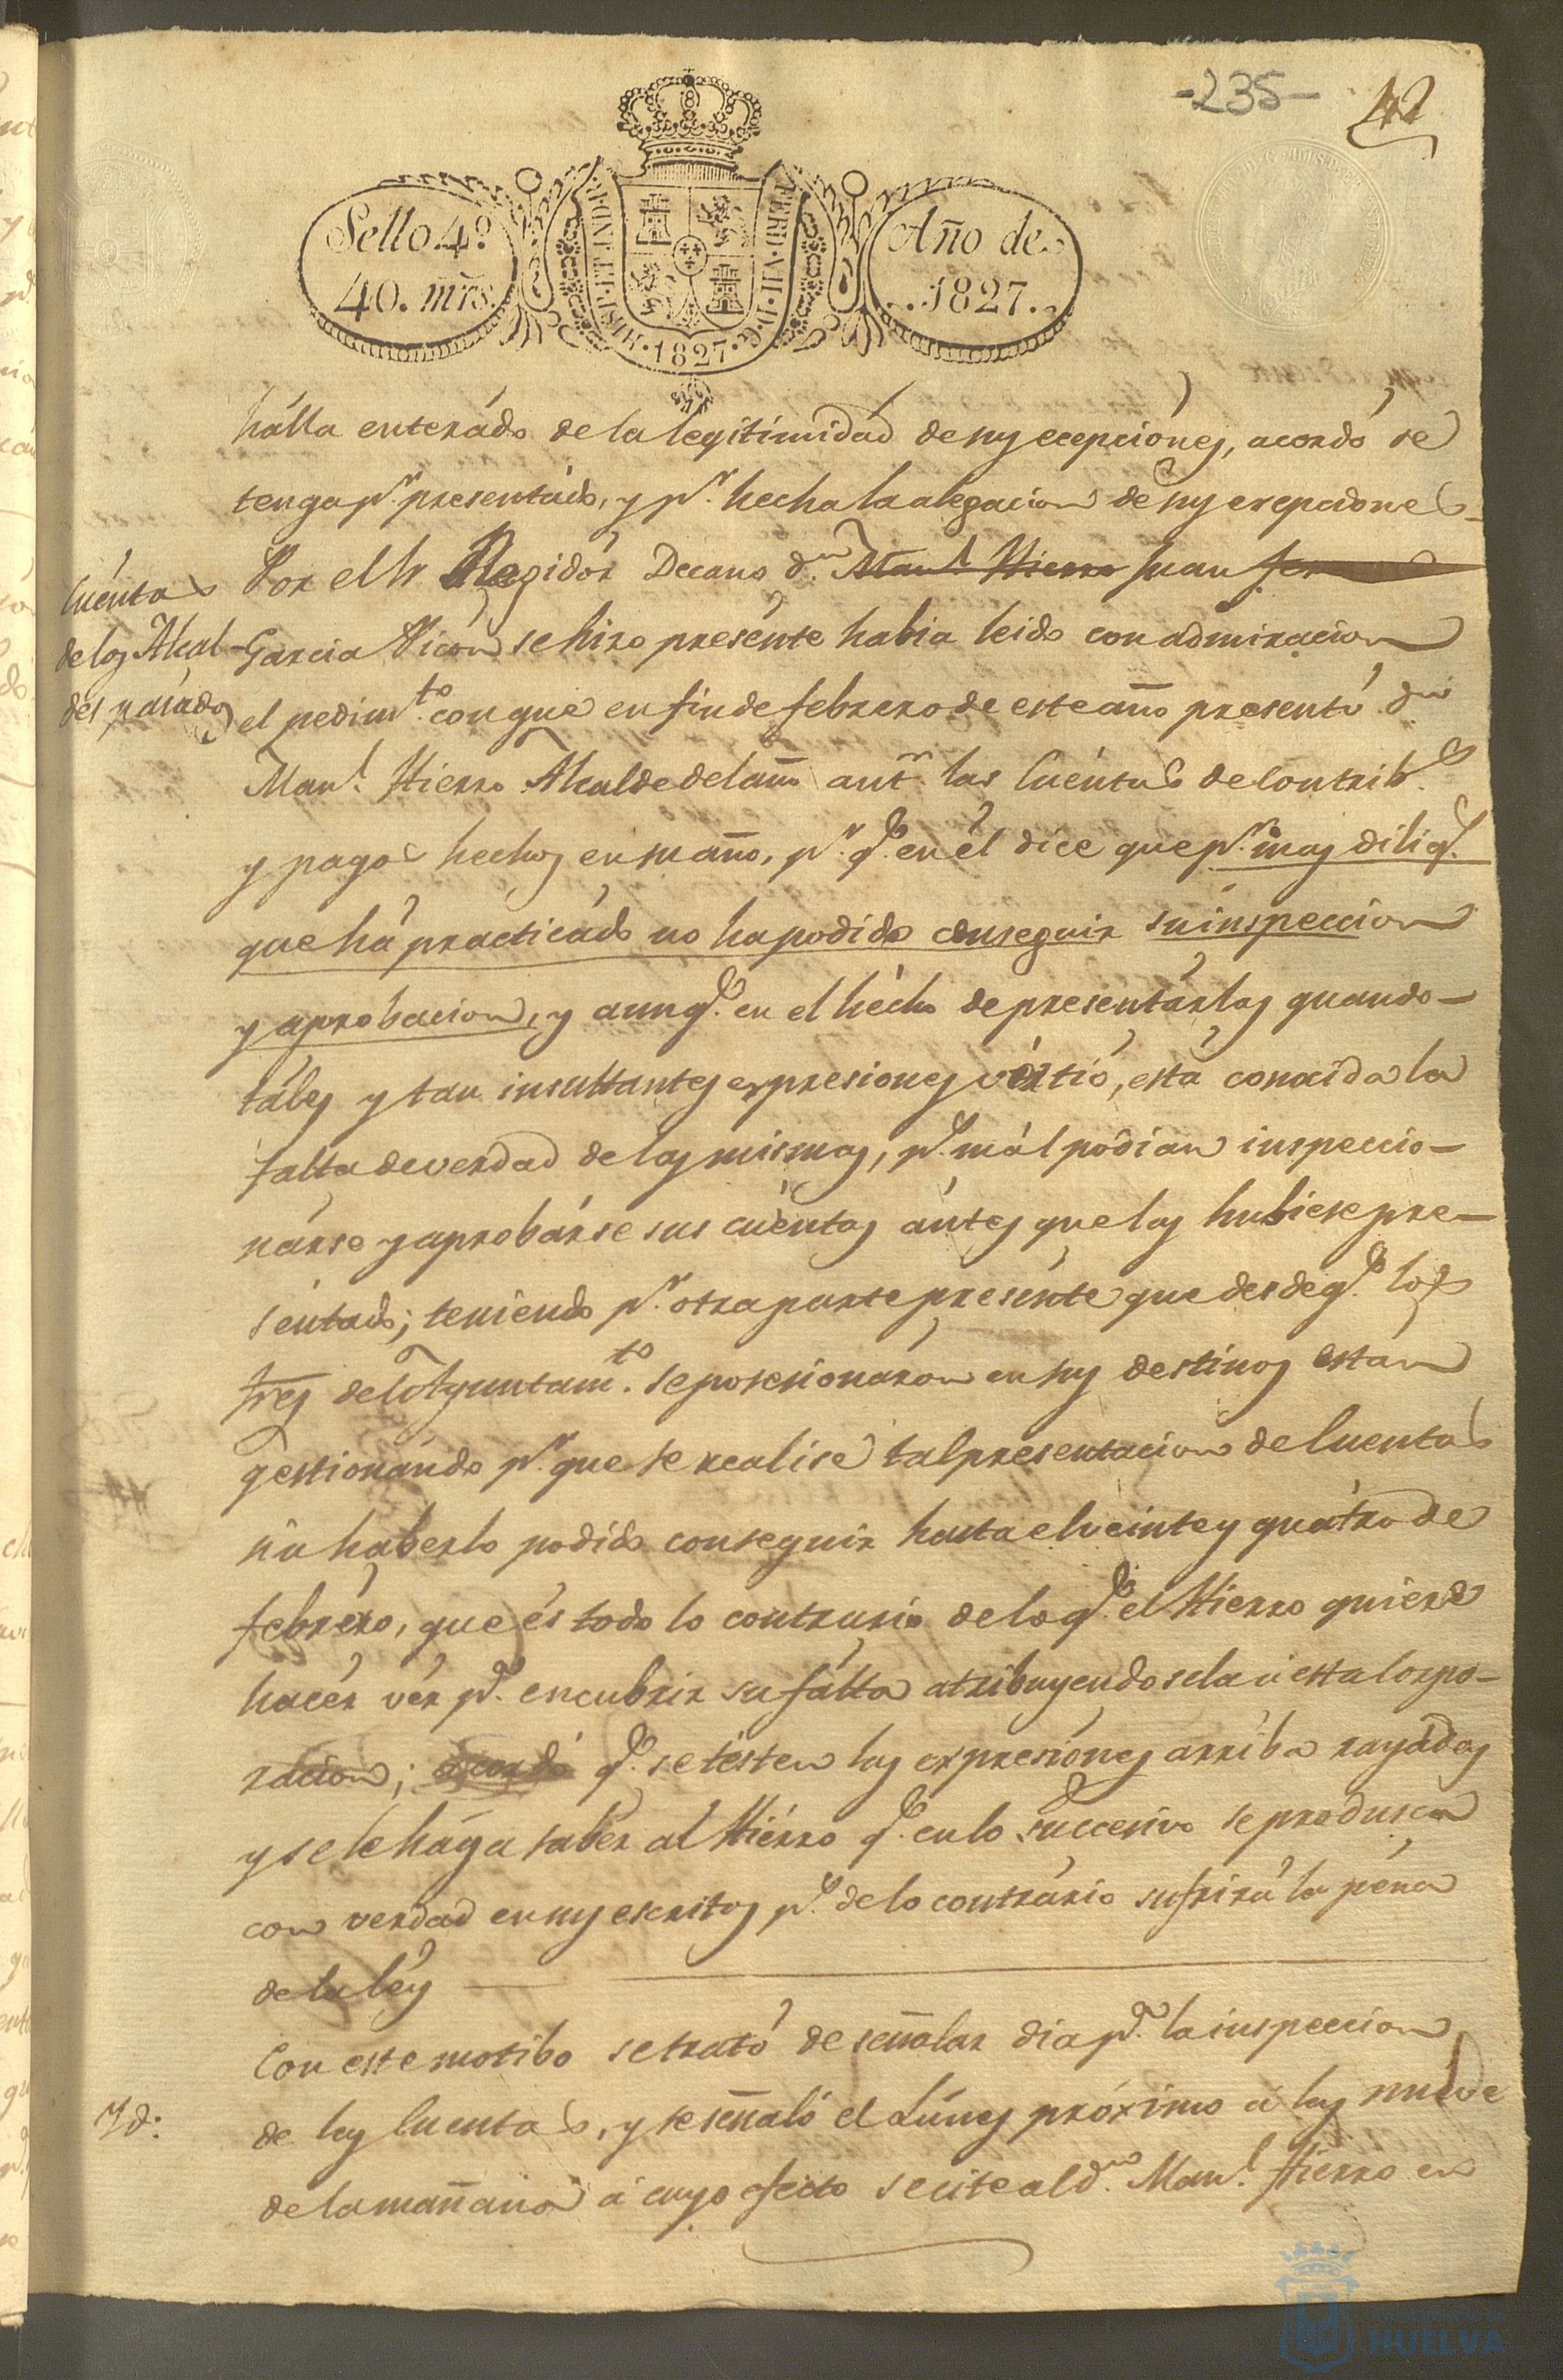 -235-
42
Sello 4º
40. mrs.
HISP. ET IND. R.
FERD. VII. D. G.
1827
Año de
1827.
hálla enterádo de la legitimidád de sus ecepciónes, acordó se
tenga p.r presentádo, y p.r hecha la alegacion de sus excepciones_
Cuéntas
de los Alcal-
des pasados
Por el Sr Regidór Decano d.n Man.l Hierro Juan Fer
Garcia Vicon se hizo presénte habia leido con admiracion
el pedim.to con que en fin de febrero de este año presentó d.n
Man.l Hierro Alcalde del año ant.r las Cuéntas de Contrib.s
y pagos hechos en su año, p.r q.e en él dice que p.r mas dilig.s
que há practicádo no ha podido conseguir su inspeccion
y aprobacion, y aunq.e en el hécho de presentárlas quando-
táles y tan insultantes expresiones vertió, está conocida la
falta de verdad de las mismas, p.s mál podian inspeccio-
nárse y aprobárse sus cuéntas ántes que las hubiese pre-
sentado; teniendo p.r otra parte presénte que desde q.e los
Sres del Ayuntam.to se posesionaron en sus destinos están
gestionándo p.r que se realise tal presentacion de Cuentas
sin haberlo podido conseguir hasta el veinte y quátro de
febréro, que és todo lo contrario de lo q.e el Hierro quiere
hacér vér p.a encubrir su fálta atribuyendosela á esta Corpo-
racion; acordó q.e se tésten las expresiónes arríba rayádas
y se le hága saber al Hiérro q.e en lo succesivo se produsca
con verdad en sus escritos p.s de lo contrário sufrirá la péna
de la léy
Con este motibo se trató de señalar dia p.a la inspeccion
Yd.
de las Cuentas, y se señaló el Lúnes próximo á las nueve
de la mañana á cuyo efecto se cite al d.n Man.l Hierro en
HUELVA